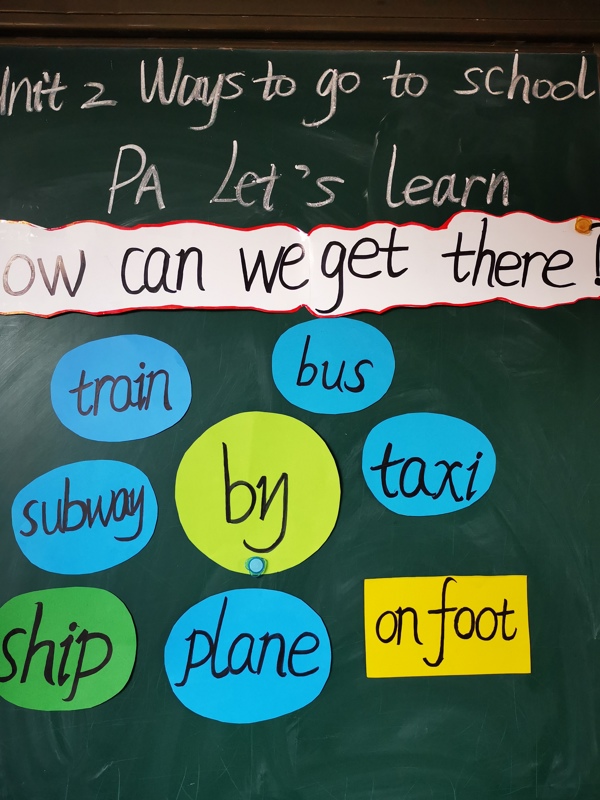 Unit 2 Ways to go to school
PA Let's learn
ow can we get there?
train
bus
by
taxi
subway
ship
plane
on foot